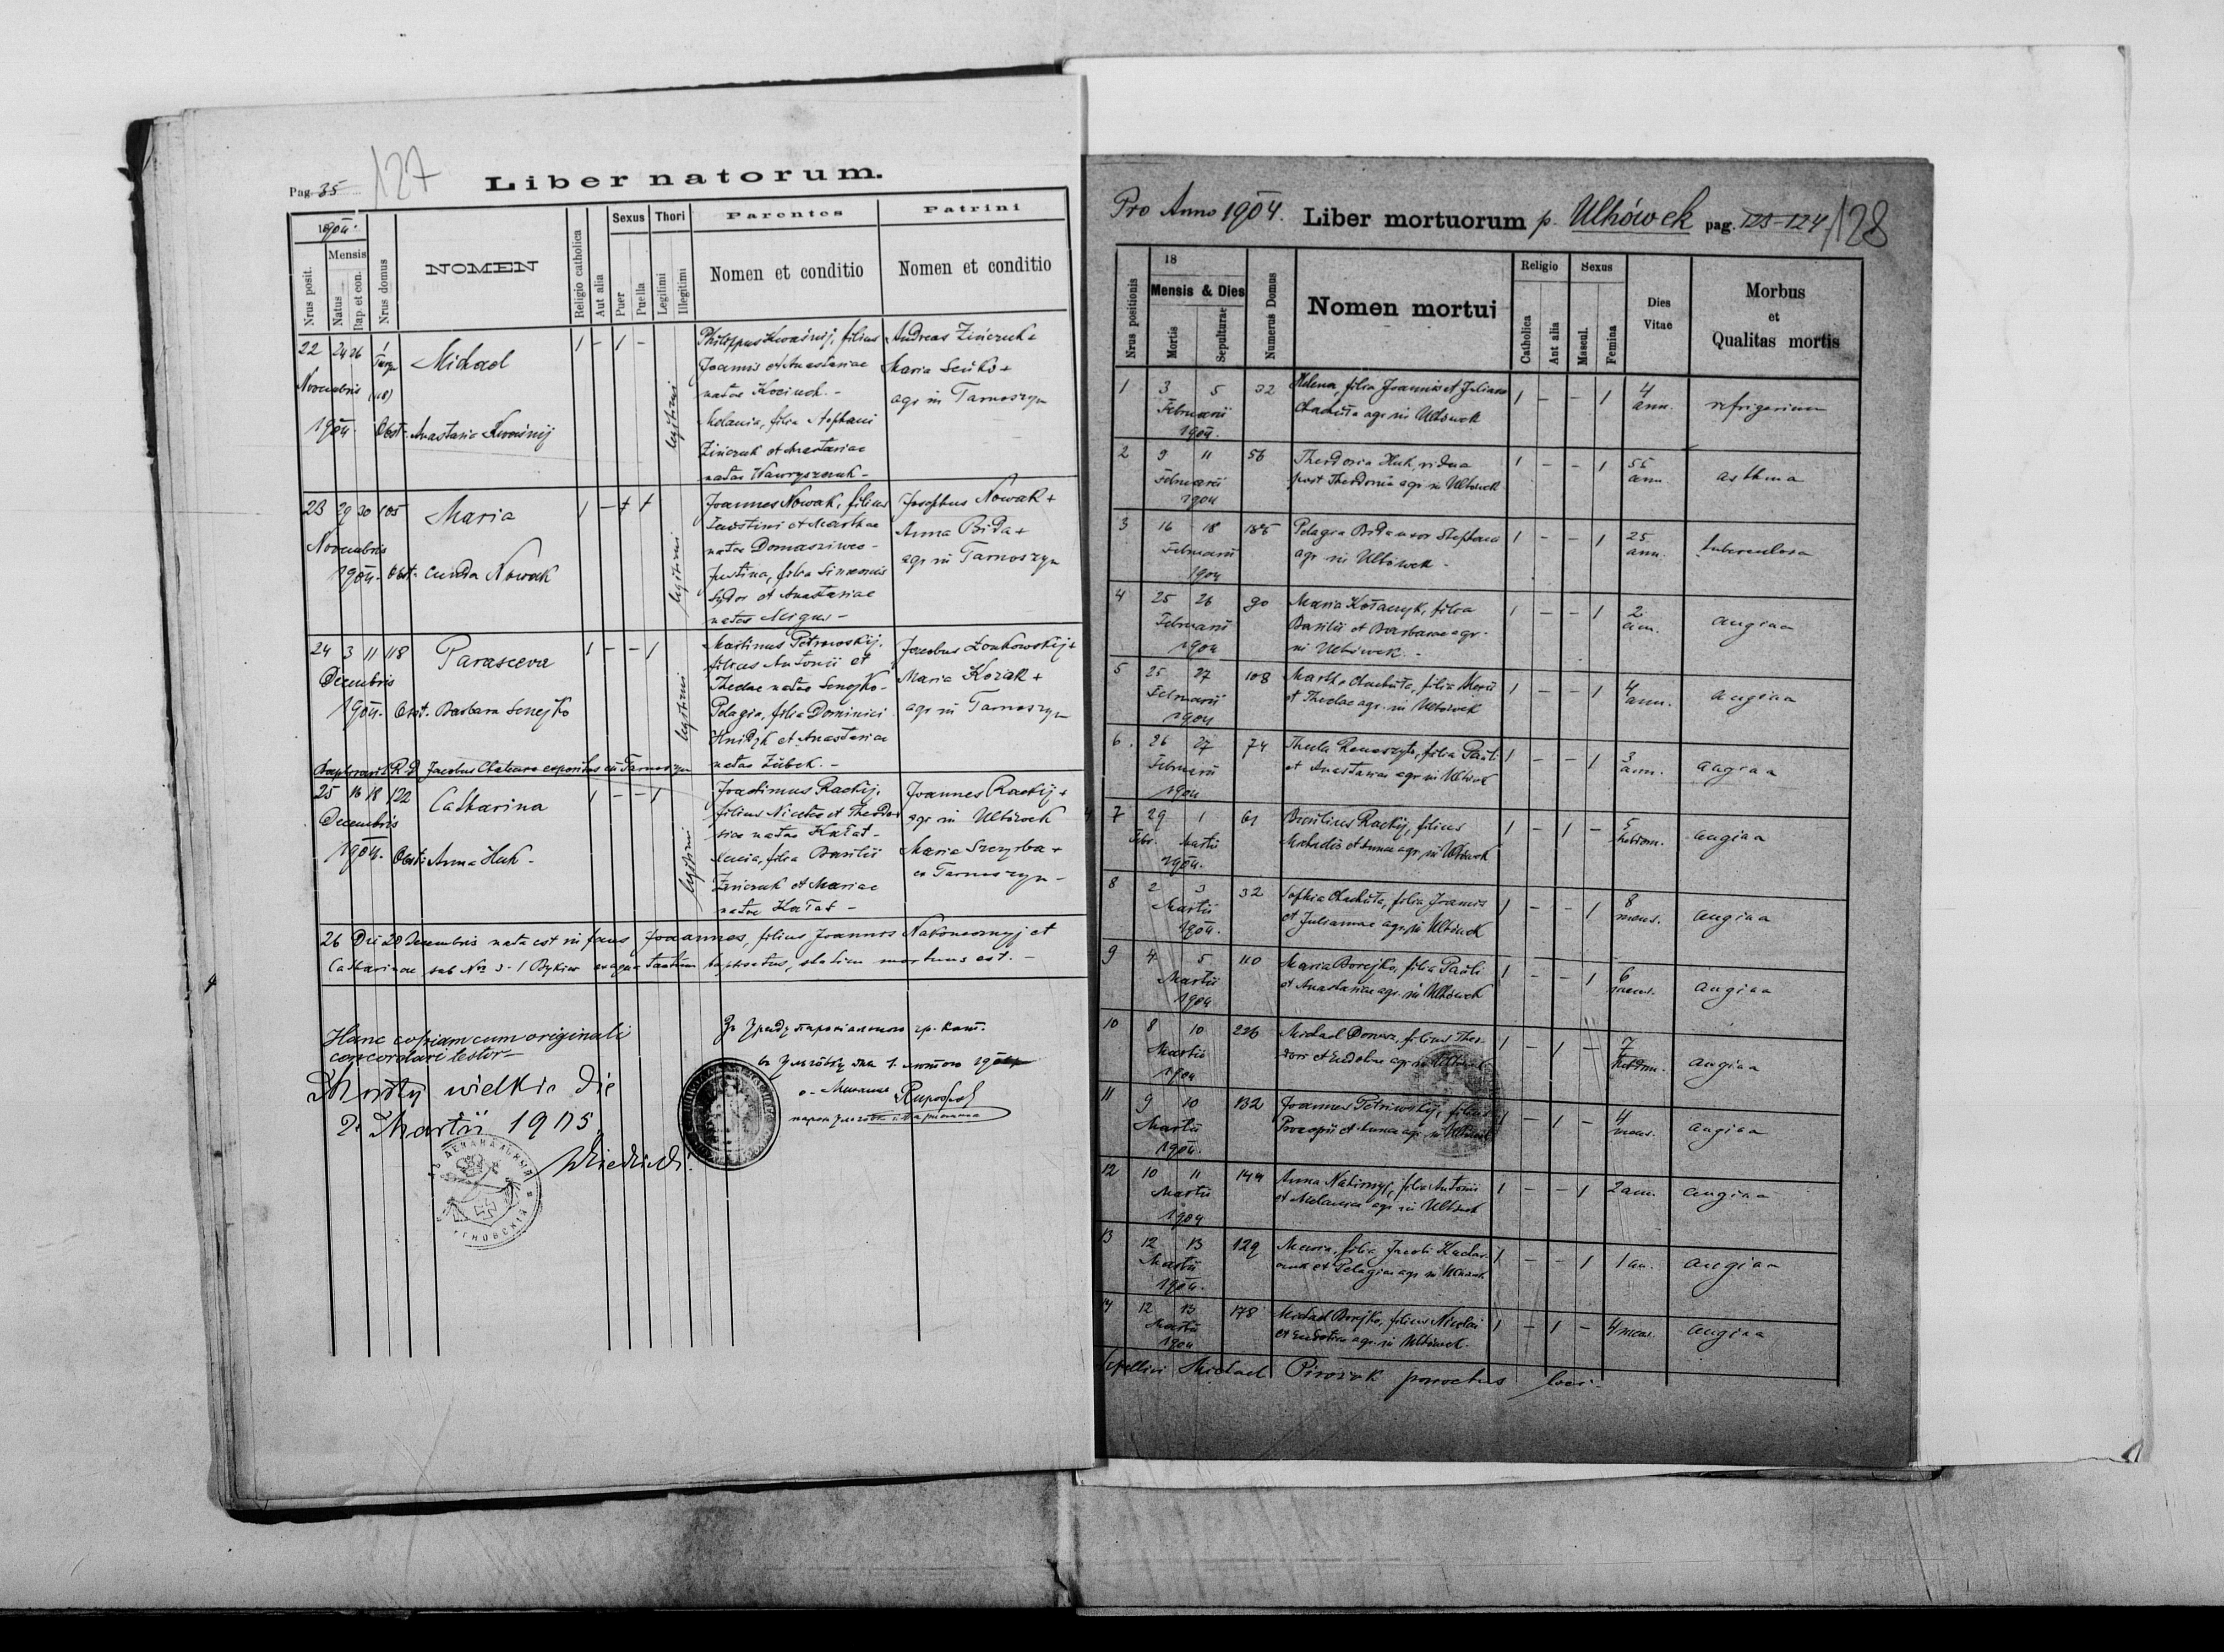 Pag. 35
127
Liber natorum.
1904.
Mensis
Nrus posit.
Natus
Bap. et con.
Nrus domus
NOMEN
Religio catholica
Aut alia
Sexus
Puer
Puella
Thori
Legitimi
Illegitimi
Parentes
Nomen et conditio
Patrini
Nomen et conditio
22 24 26 1
Novembris (118)
1904. Obst. Anastasia Kwaśnij
Michael
1 - 1 -
legitimi
Philippus Kwaśnij, filius
Joannis et Anastasiae
natae
Melania, filia Stephani
Zińczuk et Anastasiae
natae Wawryszczuk -
Andreas Zińczuk +
Maria Seńko +
agr in Tarnoszyn
23 29 30 105
Novembris
1904. Obst. Nowak
Maria
legitimi
Joannes Nowak, filius
Faustini et Marthae
natae
Justina, filia Simeonis
Sydor et Anastasiae
natae Migus -
Josephus Nowak +
Anna Bida +
agr in Tarnoszyn
24 3 11 118
Decembris
1904. Obst. Barbara Senejko
Parasceva
1 - - 1
legitimi
Martinus Petrowskij,
filius Antonii et
Theclae natae Senejko -
Pelagia, filia Dominici
Hnidyk et Anastasiae
natae Zubek. -
Jacobus Lonkowskij +
Maria Kozak +
agr in Tarnoszyn
Baptisavit R. D. Jacobus expositus in Tarnoszyn
25 16 18 122
Decembris
1904. Obst. Anna Huk -
Catharina
1 - - 1
legitimi
Joachimus Rackij,
filius Nicetae et Theodo
siae natae Kałat -
Lucia, filia Basilii
Zińczuk et Mariae
natae Kałat -
Joannes Rackij +
agr in Ulhówek
Maria Szczyrba +
ex Tarnoszyn -
26 Die 20 Decembris nata est infans Joannes, filius Joannis Nakonecznyj et
Catharinae sub Nro 3-1 ex aqua tantum baptisatus, statim mortuus est. -
Hanc copiam cum originali
concordari testor -
Mosty wielkie die
2. Martii 1905
Pro Anno 1904. Liber mortuorum p. Ulhówek pag. 123-124 128
Nrus positionis
18
Mensis & Dies
Mortis
Sepulturae
Numerus Domus
Nomen mortui
Religio
Catholica
Aut alia
Sexus
Mascul.
Femina
Dies Vitae
Morbus
et
Qualitas mortis
1 3 5 32 Helena, filia Joannis et Julianae 1 - - 1 4 refrigerium
Februarii agr in Ulhówek ann.
1904.
2 9 11 56 Theodosia Huk, vidua 1 - - 1 55 asthma
Februarii post Theodorum agr in Ulhówek ann.
1904
3 16 18 Pelagia Bida uxor Stephani 1 - - 1 25 tuberculosa
Februarii agr in Ulhówek - ann.
1904
4 25 26 90 Maria filia 1 - - 1 2 angina
Februarii Basilii et Barbarae agr. ann.
1904 in Ulhówek. -
5 25 27 108 Martha filia 1 - - 1 4 angina
Februarii et Theclae agr. in Ulhówek ann.
1904
6. 26 27 74 Thecla filia Pauli 1 - - 1 3 angina
Februarii et Anastasiae agr in Ulhówek ann.
1904
7 29 1 61 Basilius Rackij, filius 1 - 1 - 5 angina
Febr. Martii Michaelis et Annae agr in Ulhówek hebdom.
1904.
8 2 3 32 Sophia filia Joannis 1 - - 1 8 angina
Martii et Julianae agr in Ulhówek mens.
1904.
9 4 5 110 Maria Borejko, filia Pauli 1 - - 1 6 angina
Martii et Anastasiae agr. in Ulhówek mens.
1904
10 8 10 226 Michael filius Theo- 1 - 1 - 7 angina
Martii dori et Eudokiae agr in Ulhówek hebdom.
1904
11 9 10 132 Joannes Petriwskij, filius 1 - 1 - 4 angina
Martii Procopii et Annae agr in Ulhówek mens.
1904.
12 10 11 144 Anna filia Antonii 1 - - 1 2 ann. angina
Martii et Melaniae agr in Ulhówek
1904
13 12 13 129 Maria, filia Jacobi 1 - - 1 1 an. angina
Martii et Pelagiae agr in Ulhówek
1904.
14 12 13 178 Michael Borejko, filius Nicolai 1 - 1 - 4 mens. angina
Martii et Eudokiae agr in Ulhówek.
1904
Sepelivi Michael parochus loci -